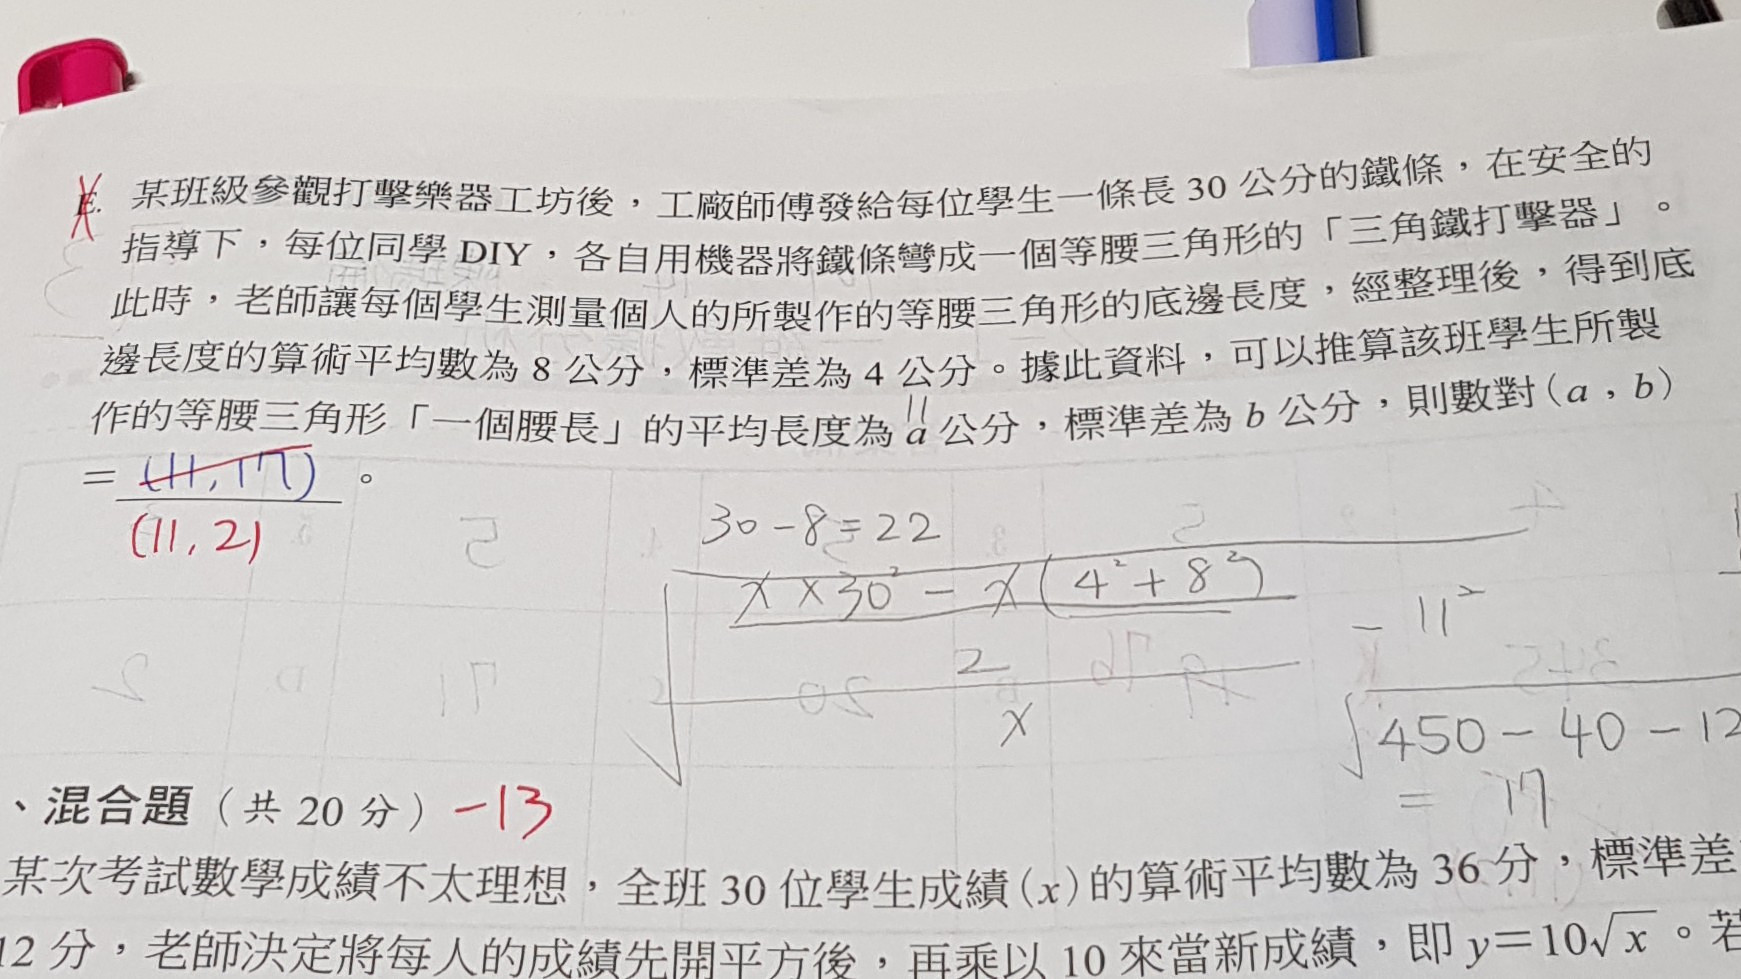 E. 某班級參觀打擊樂器工坊後，工廠師傅發給每位學生一條長 30 公分的鐵條，在安全的
指導下，每位同學 DIY，各自用機器將鐵條彎成一個等腰三角形的「三角鐵打擊器」。
此時，老師讓每個學生測量個人的所製作的等腰三角形的底邊長度，經整理後，得到底
邊長度的算術平均數為 8 公分，標準差為 4 公分。據此資料，可以推算該班學生所製
11
作的等腰三角形「一個腰長」的平均長度為 a 公分，標準差為 b 公分，則數對(a，b)
= (11, 17) 。
(11, 2)
30-8=22
x × 30² - x(4²+8²)
2
x
- 11²
√450-40-12
= 17
、混合題（共 20 分）-13
某次考試數學成績不太理想，全班 30 位學生成績(x)的算術平均數為 36 分，標準差
12 分，老師決定將每人的成績先開平方後，再乘以 10 來當新成績，即 y=10√x。若